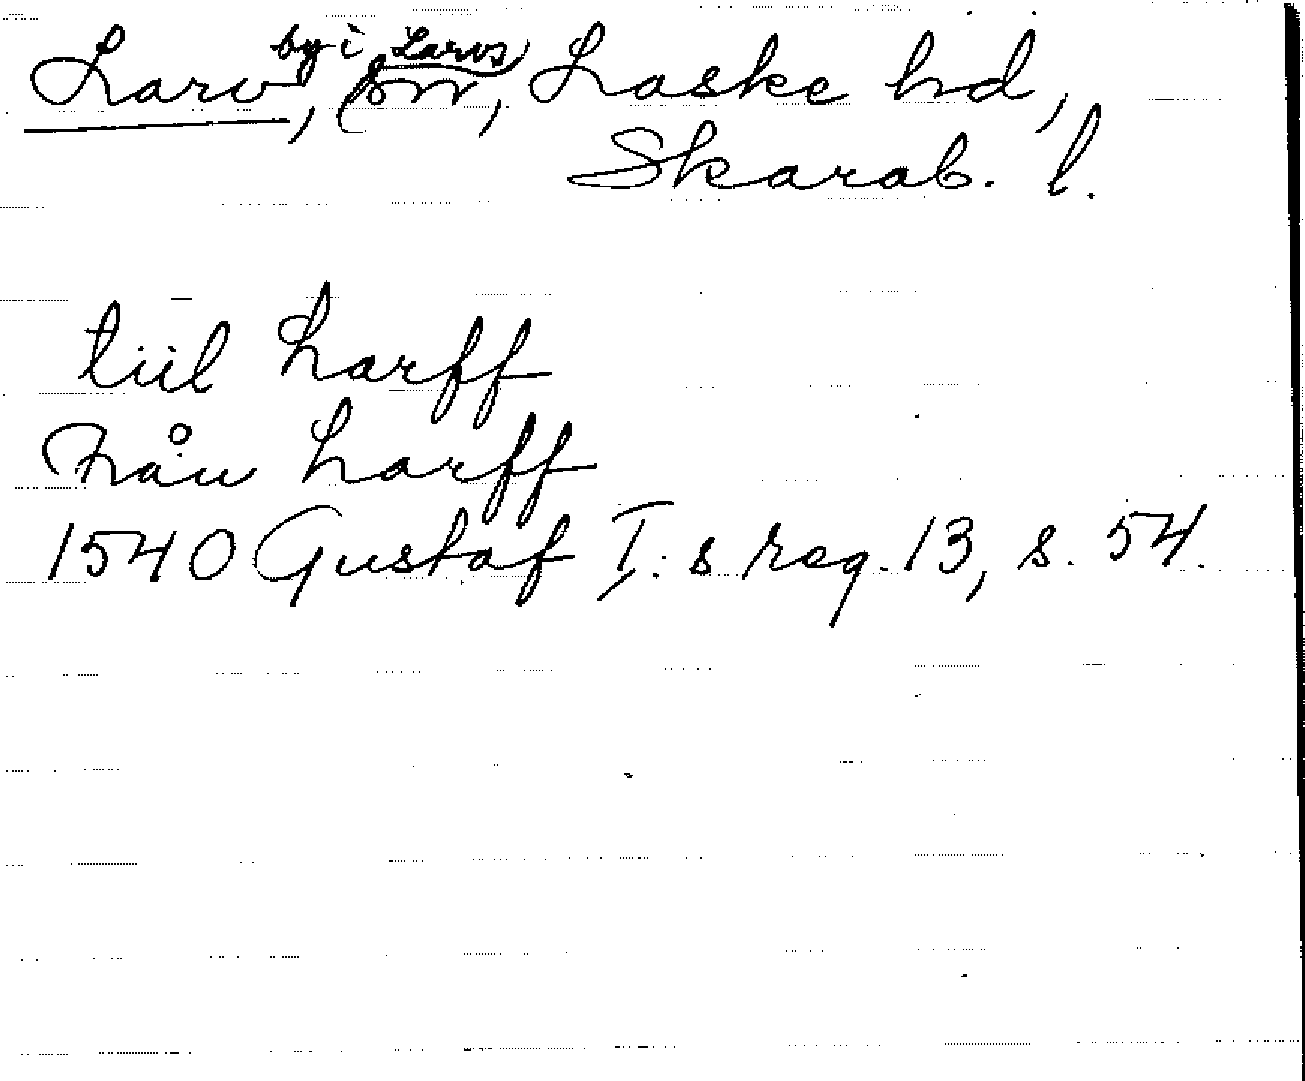 Larv, by i Larvs sn, Laske hd,
Skarab. l.
tiil Larff
Från Larff
1540 Gustaf I:s reg. 13, s. 54.